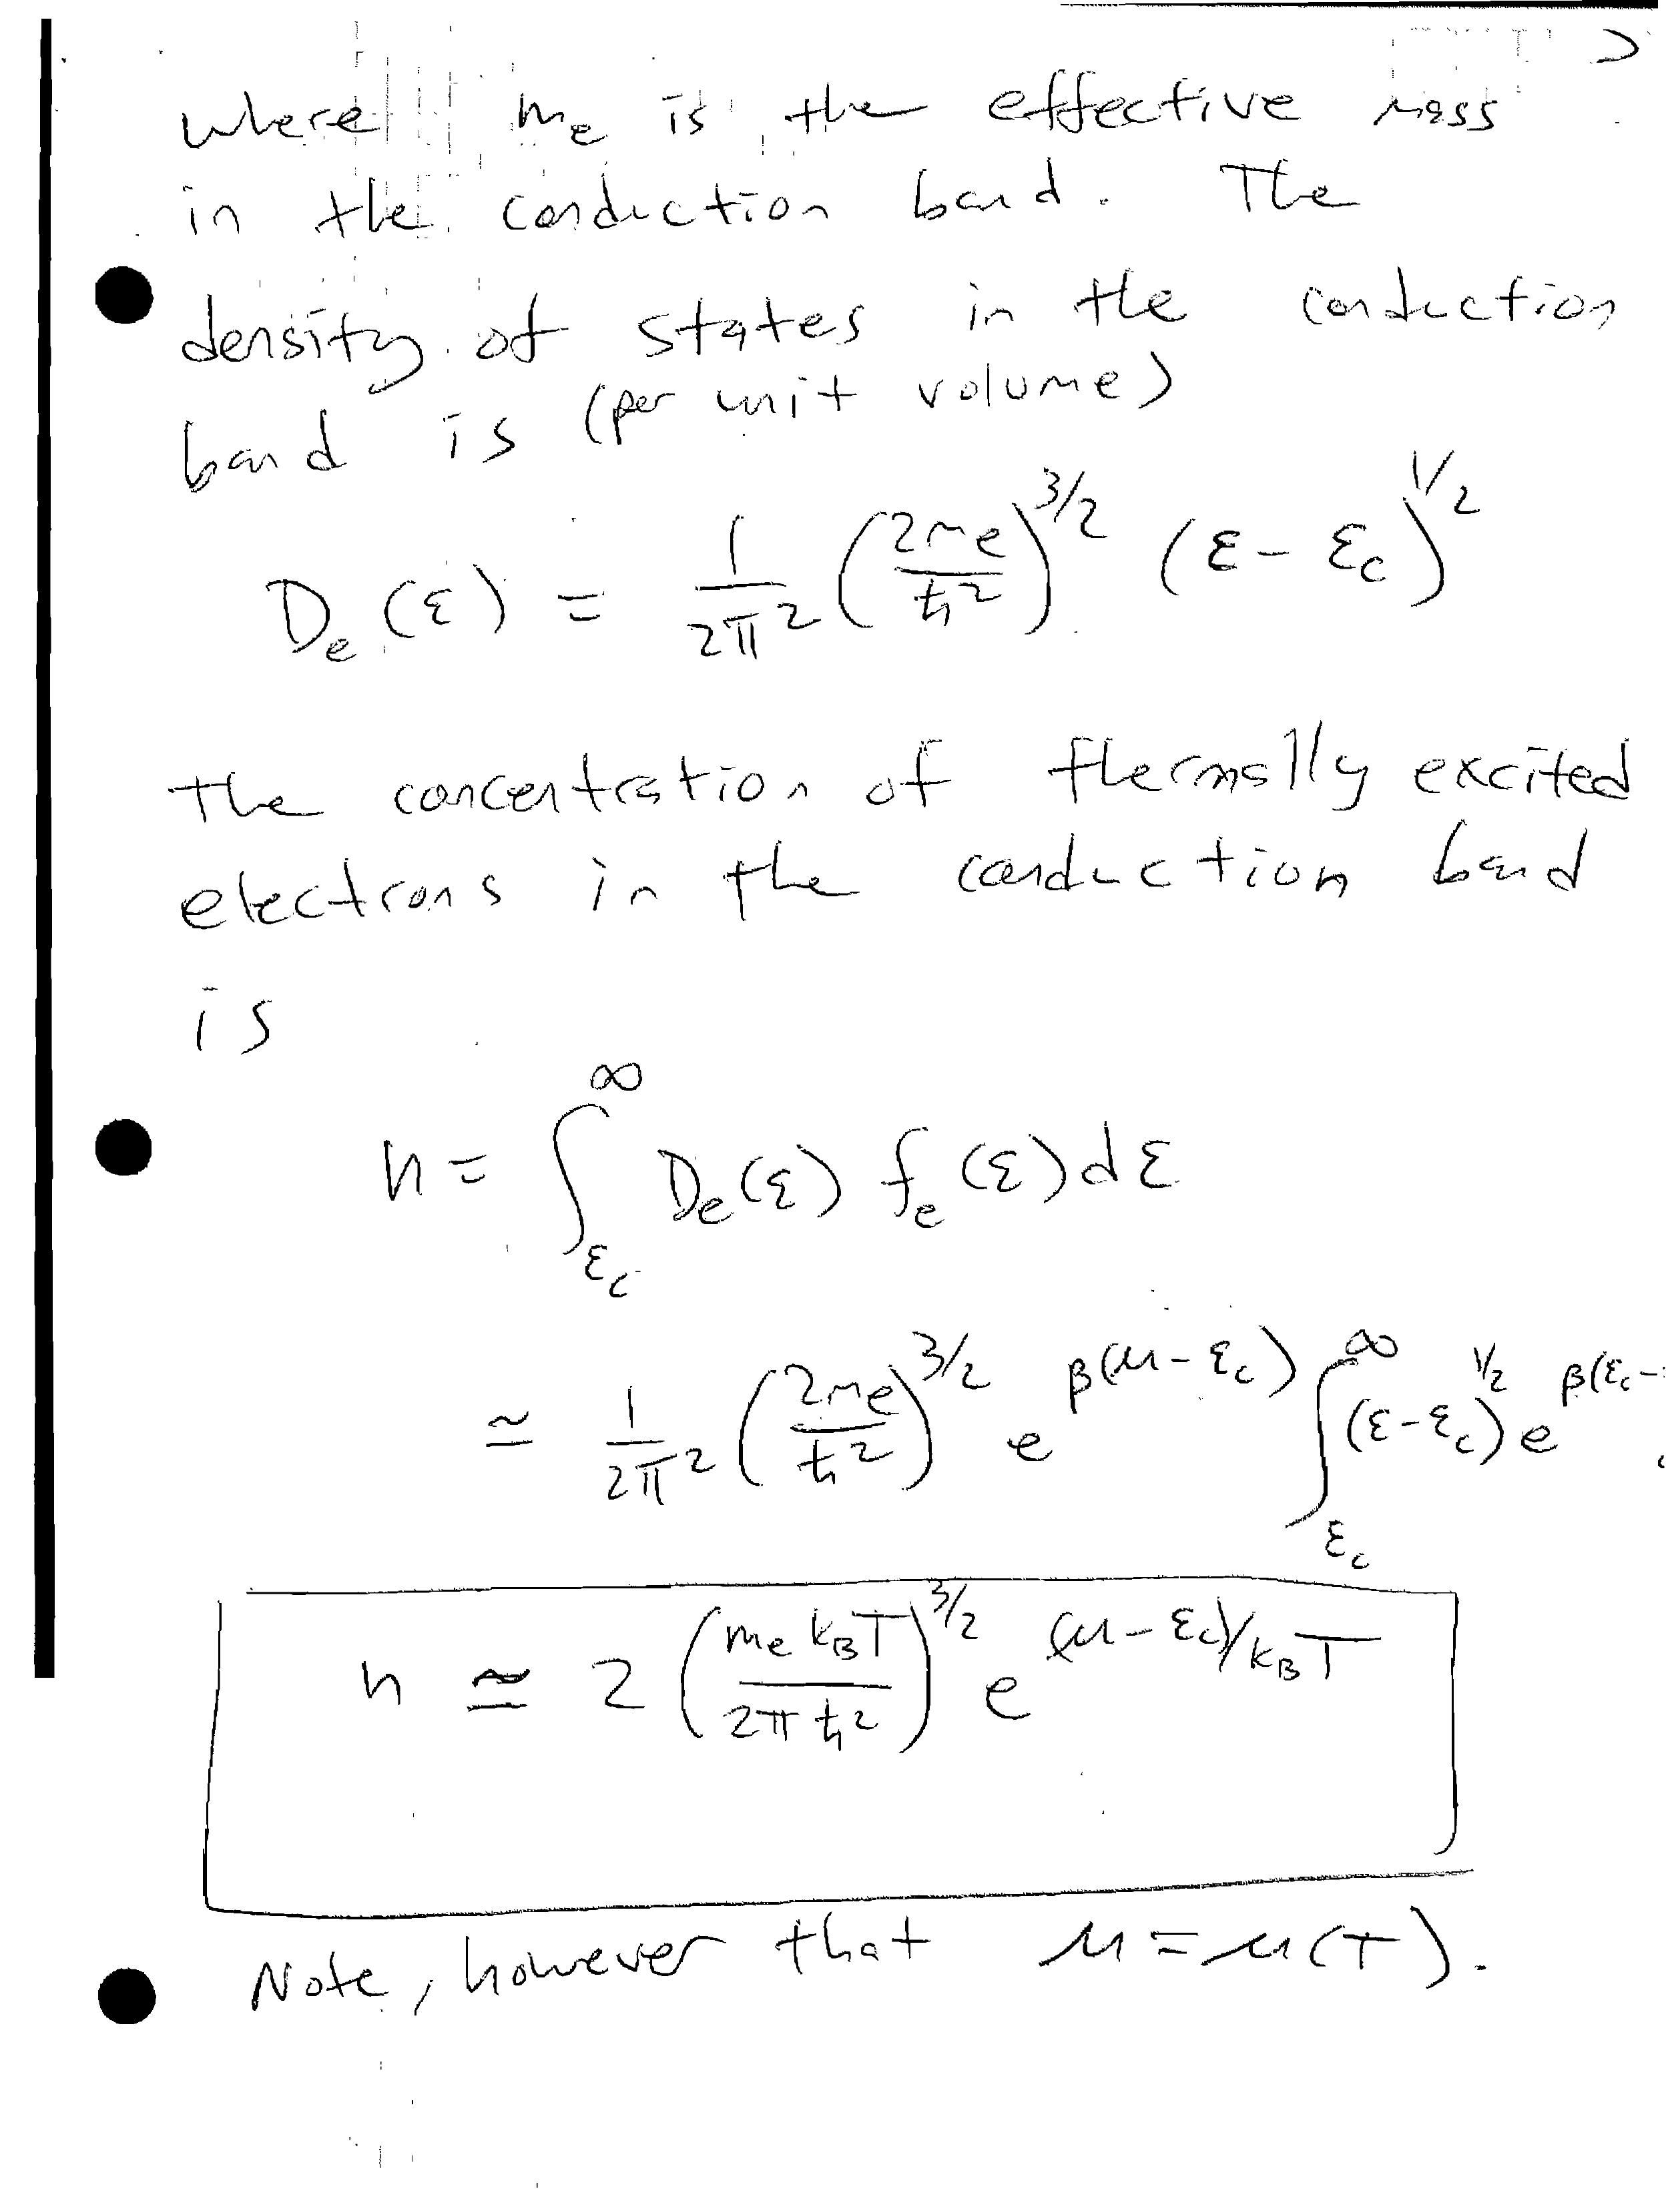 where mₑ is the effective mass
in the conduction band. The
density of states in the conduction
band is (per unit volume)
Dₑ(ε) = 1/2π² (2mₑ/ħ²)^3/2 (ε - ε_c)^1/2
The concentration of thermally excited
electrons in the conduction band
is
n = ∫_{ε_c}^∞ Dₑ(ε) fₑ(ε) dε
≃ 1/2π² (2mₑ/ħ²)^3/2 e^β(μ-ε_c) ∫_{ε_c}^∞ (ε-ε_c)^1/2 e^β(ε_c-
n ≃ 2 (mₑ k_B T/2πħ²)^3/2 e^(μ-ε_c)/k_B T
Note, however that μ = μ(T).